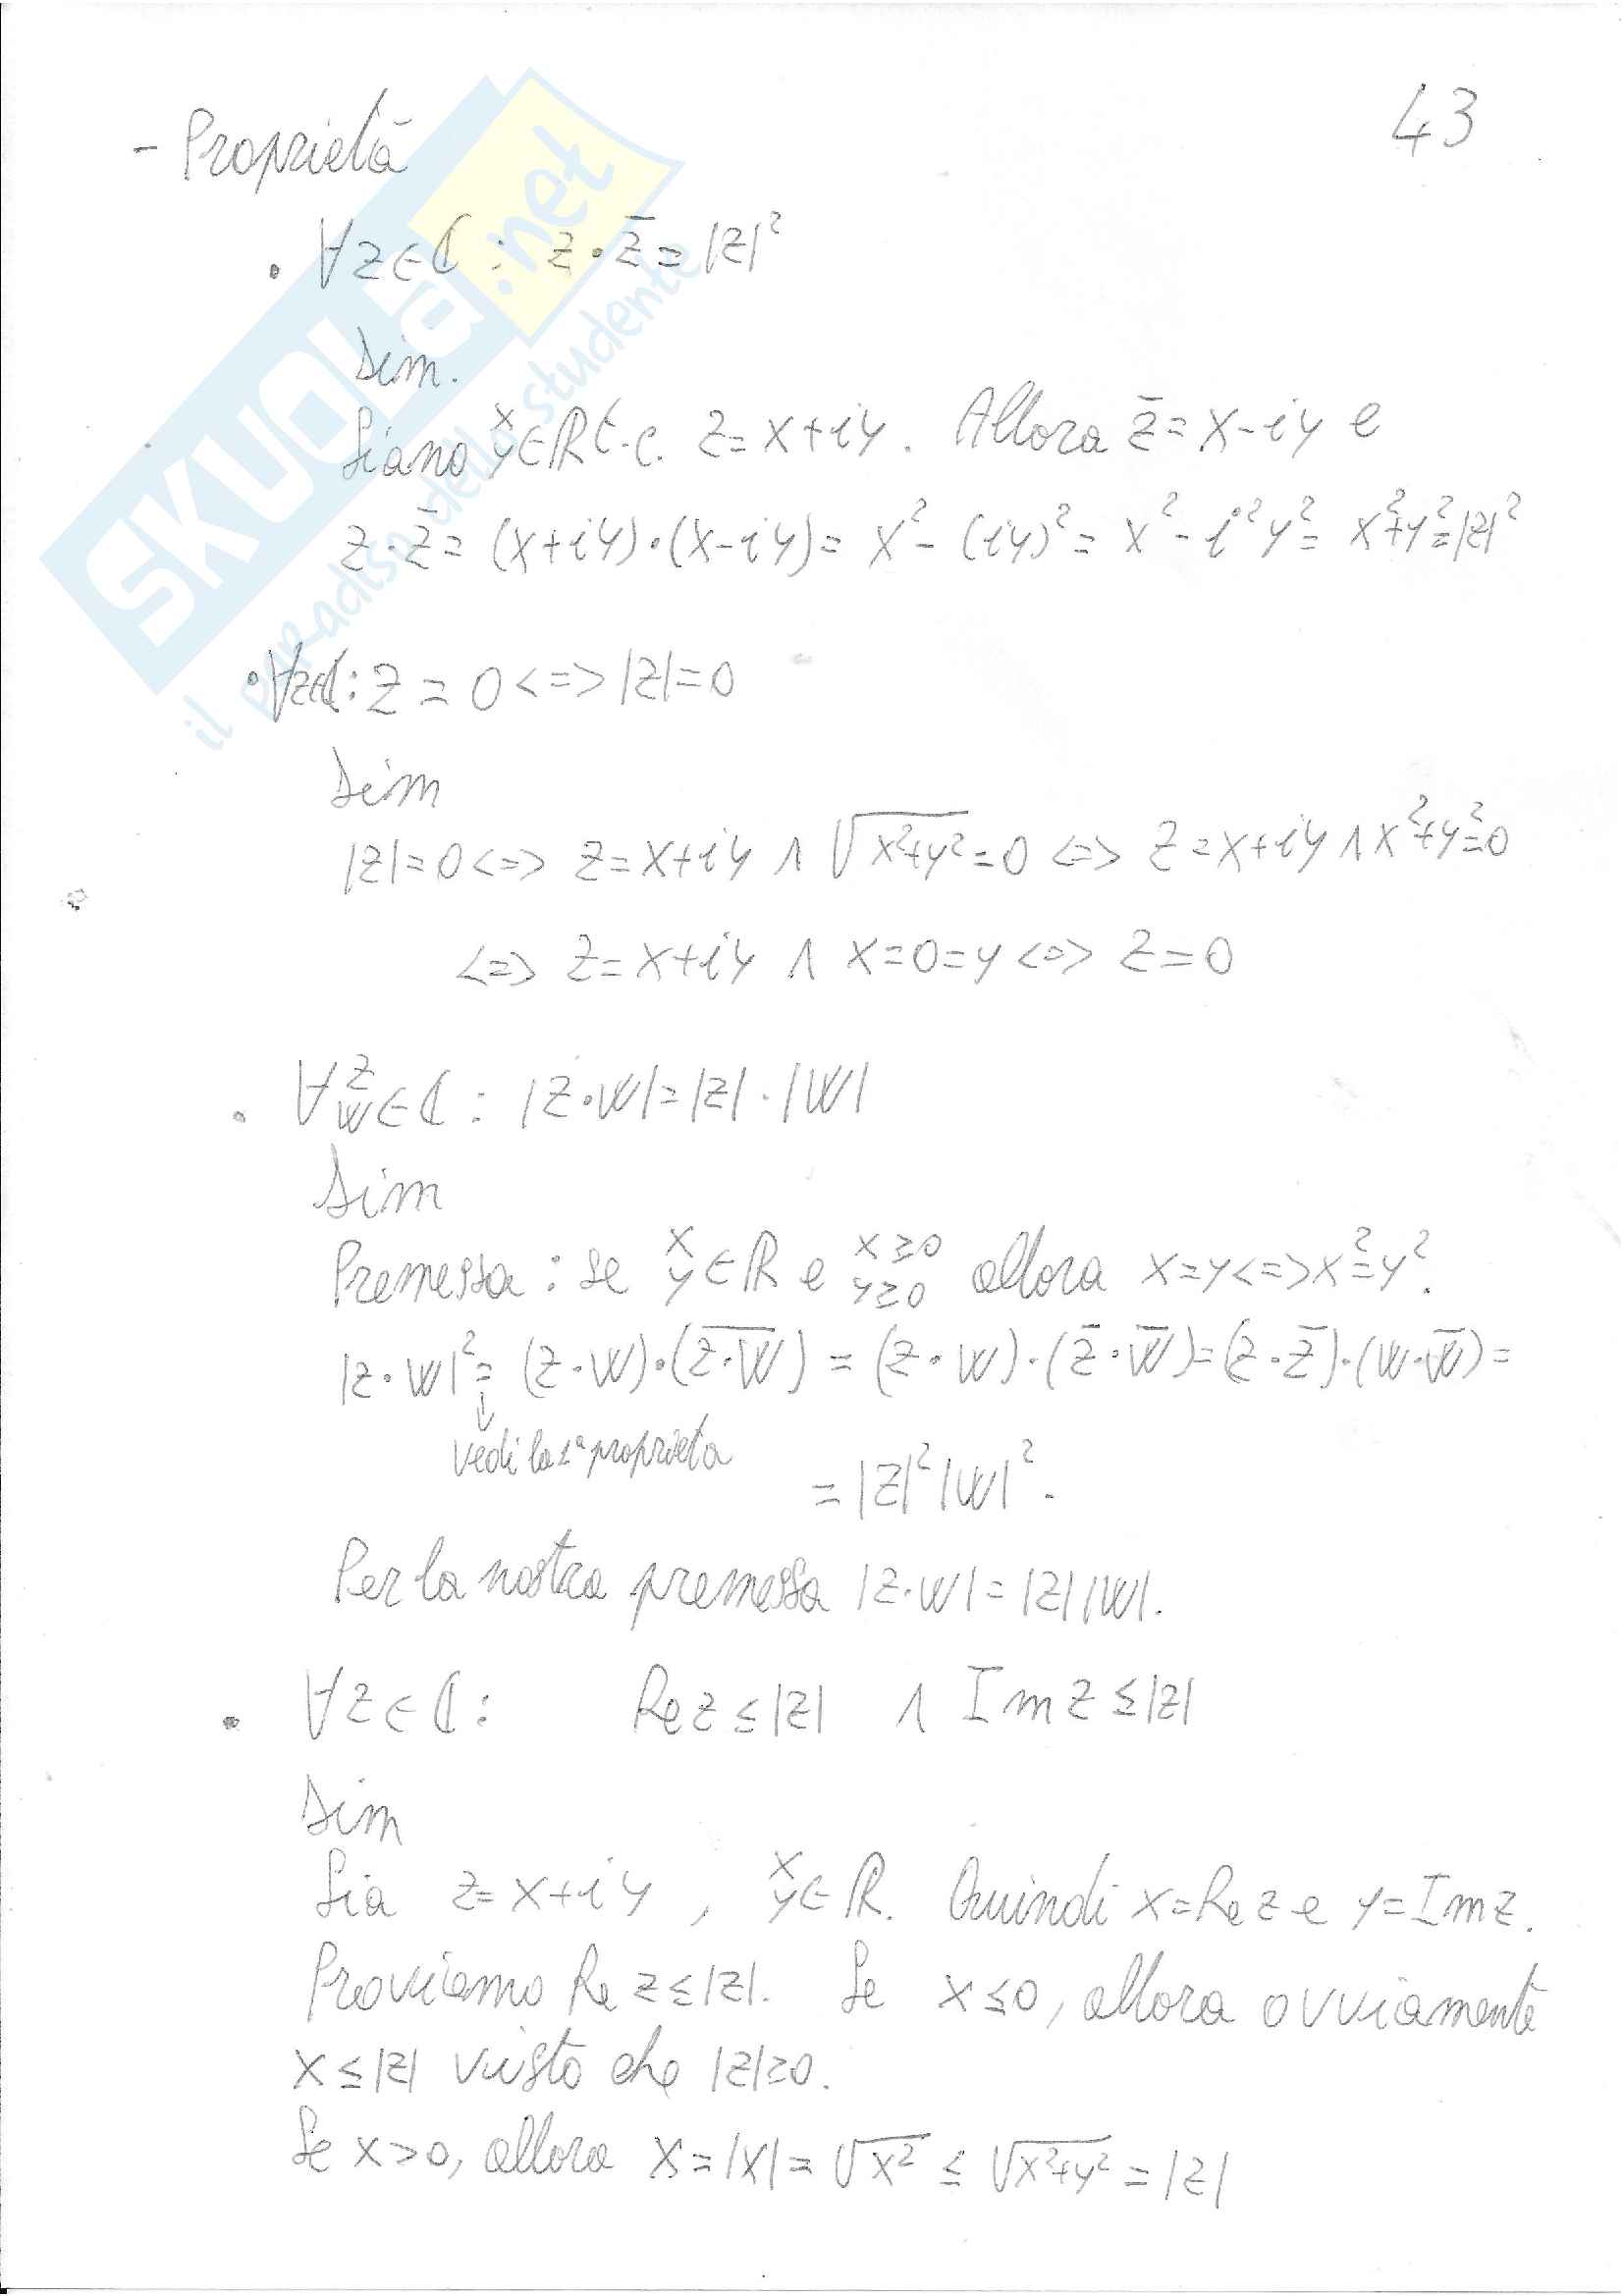 43
- Proprietà
• ∀z∈ℂ : z·z̄ = |z|²
Dim.
Siano x y ∈ℝ t.c. z = x+iy. Allora z̄ = x-iy e
z·z̄ = (x+iy)·(x-iy) = x² - (iy)² = x² - i²y² = x²+y² = |z|²
• ∀z∈ℂ : z = 0 <=> |z| = 0
Dim
|z| = 0 <=> z = x+iy ∧ √x²+y² = 0 <=> z = x+iy ∧ x²+y² = 0
<=> z = x+iy ∧ x = 0 = y <=> z = 0
• ∀ z w ∈ℂ : |z·w| = |z|·|w|
Dim
Premessa : se x y ∈ℝ e x≥0 y≥0 allora x=y <=> x²=y².
|z·w|² = (z·w)·(z·w)̄ = (z·w)·(z̄·w̄) = (z·z̄)·(w·w̄) =
↓
vedi la 1ª proprietà
= |z|²|w|².
Per la nostra premessa |z·w| = |z||w|.
• ∀z∈ℂ : Re z ≤ |z| ∧ Im z ≤ |z|
Dim
Sia z = x+iy , x y ∈ℝ. Quindi x = Re z e y = Im z.
Proviamo Re z ≤ |z|. Se x ≤ 0, allora ovviamente
x ≤ |z| visto che |z| ≥ 0.
Se x > 0, allora x = |x| = √x² ≤ √x²+y² = |z|
SKUOLA.net
il paradiso dello studente